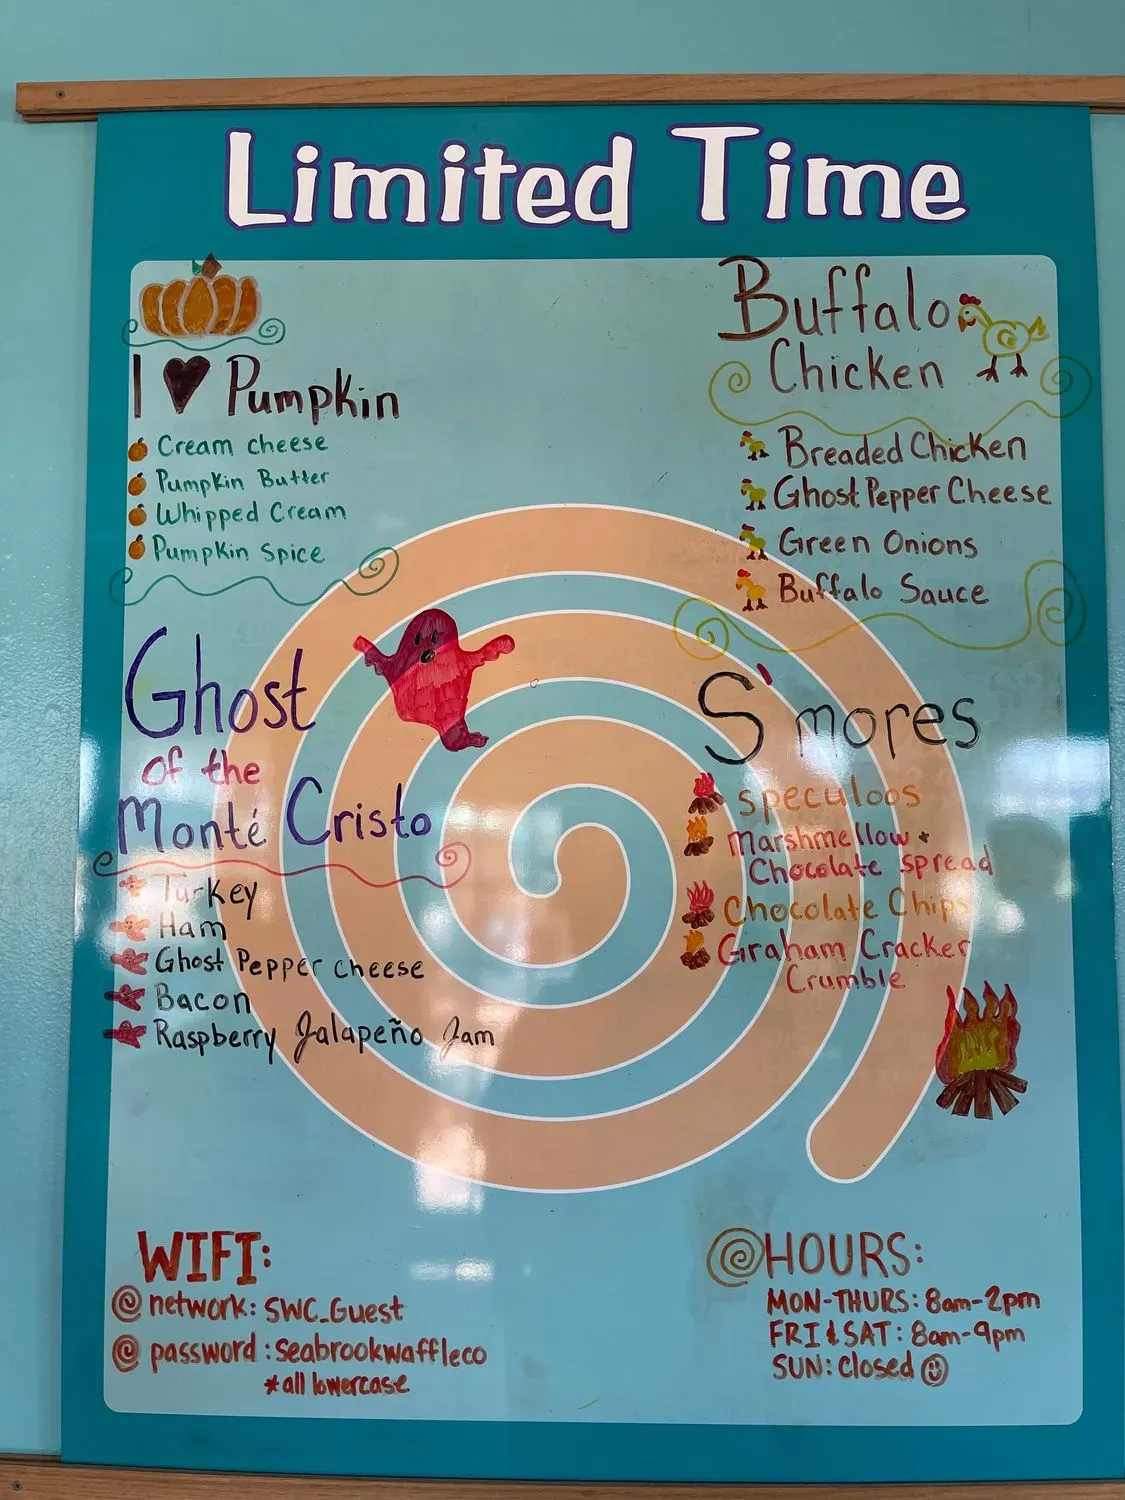 Limited Time
I ♥ Pumpkin
Cream cheese
Pumpkin Butter
Whipped Cream
Pumpkin Spice
Ghost
of the
Monté Cristo
Turkey
Ham
Ghost Pepper cheese
Bacon
Raspberry Jalapeño Jam
Buffalo
Chicken
Breaded Chicken
Ghost Pepper Cheese
Green Onions
Buffalo Sauce
S'mores
speculoos
Marshmellow +
Chocolate spread
Chocolate Chips
Graham Cracker
Crumble
WIFI:
@ network: SWC_Guest
@ password: seabrookwaffleco
*all lowercase
@HOURS:
MON-THURS: 8am-2pm
FRI & SAT: 8am-9pm
SUN: closed ☺